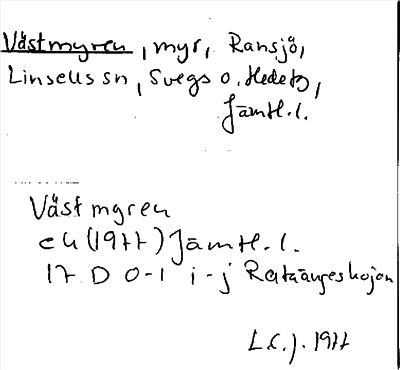 Västmyren, myr, Ransjö,
Linsells sn, Svegs o. Hedetz,
Jämtl. l.
Västmyren
ek (1977) Jämtl. l.
17 D 0-1 i-j
L.C.J. 1977